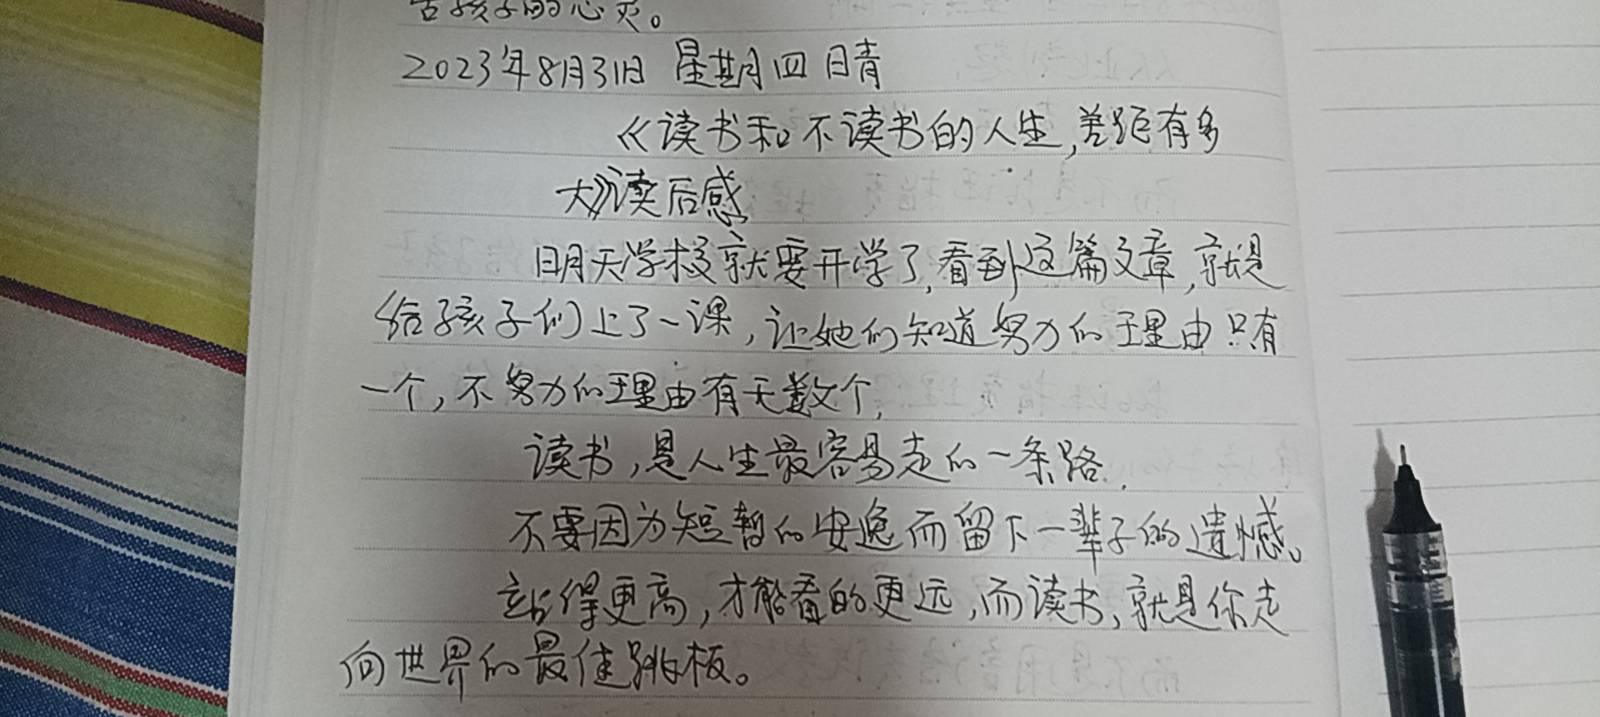 害孩子的心灵。
2023年8月31日 星期四 晴
《读书和不读书的人生,差距有多
大》读后感
明天学校就要开学了,看到这篇文章,就是
给孩子们上了一课,让她们知道努力的理由只有
一个,不努力的理由有无数个,
读书,是人生最容易走的一条路.
不要因为短暂的安逸而留下一辈子的遗憾。
站得更高,才能看的更远,而读书,就是你走
向世界的最佳跳板。